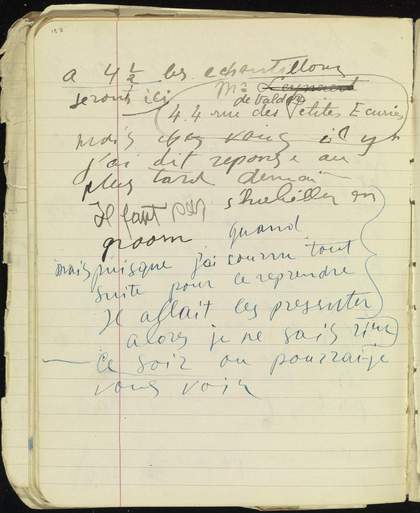 a 4 ½ les echantillons
seront ici Mr
de Valdor
44 rue des Petites Ecuries
mais chez vous il y
j'ai dit reponse au
plus tard demain
Il faut pas s'habiller en
groom quand
mais puisque j'ai couru tout
suite pour le reprendre
Il allait les presenter
alors je ne sais rien
— Ce soir ou pourraije
vous voir